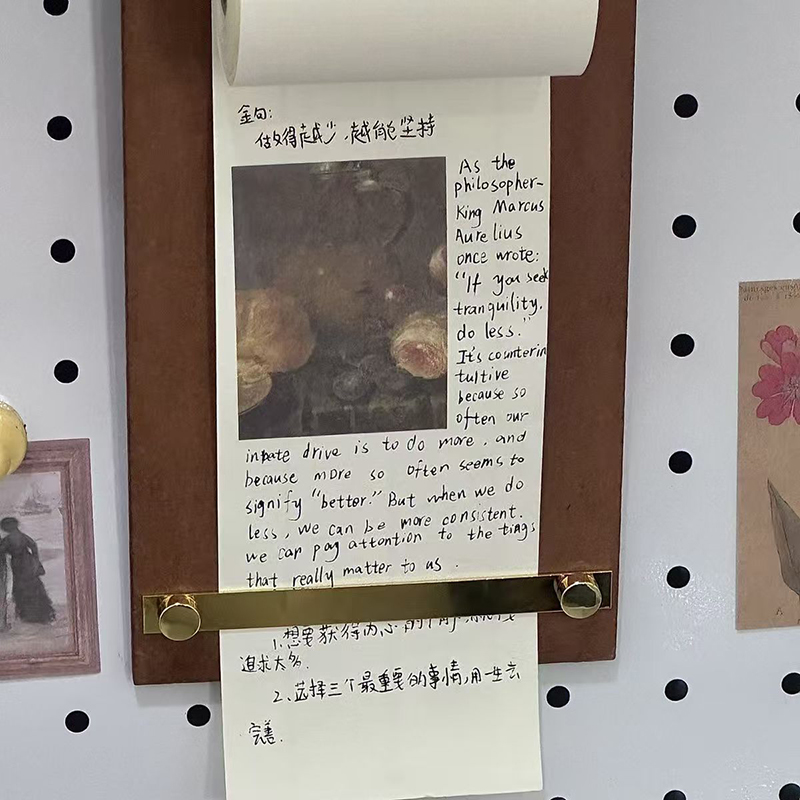 金句:
做得越少,越能坚持
As the
philosopher-
King Marcus
Aurelius
once wrote:
"If you seek
tranquility,
do less."
It's counterin
tuitive
because so
often our
innate drive is to do more, and
because more so often seems to
signify "better." But when we do
less, we can be more consistent.
we can pay attention to the tings
that really matter to us.
1.想要获得内心的
追求太多.
2、选择三个最重要的事情,用一生去
完善.